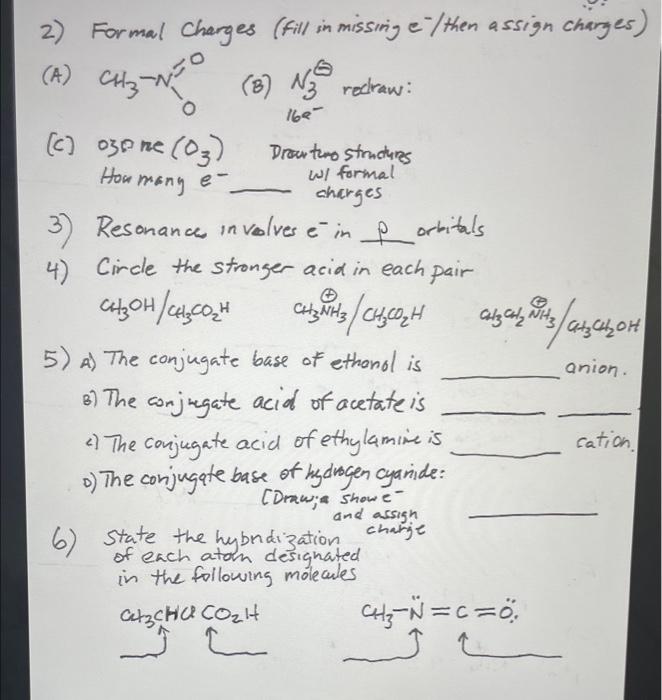 2) Formal Charges (fill in missing e⁻/then assign charges)
(A) CH₃-N=O O (B) N₃⊖ redraw:
16e⁻
(C) ozone (O₃) Draw two structures
How many e⁻ ____ w/ formal
charges
3) Resonance involves e⁻ in _p_ orbitals
4) Circle the stronger acid in each pair
CH₃OH/CH₃CO₂H CH₃NH₃⊕/CH₃CO₂H CH₃CH₂NH₃⊕/CH₃CH₂OH
5) A) The conjugate base of ethanol is ________ anion.
B) The conjugate acid of acetate is ________ ________
c) The conjugate acid of ethylamine is ________ cation.
D) The conjugate base of hydrogen cyanide:
[Draw; show e⁻
and assign ________
charge
6) State the hybridization
of each atom designated
in the following molecules
CH₃CHCl CO₂H CH₃-N̈=C=Ö: